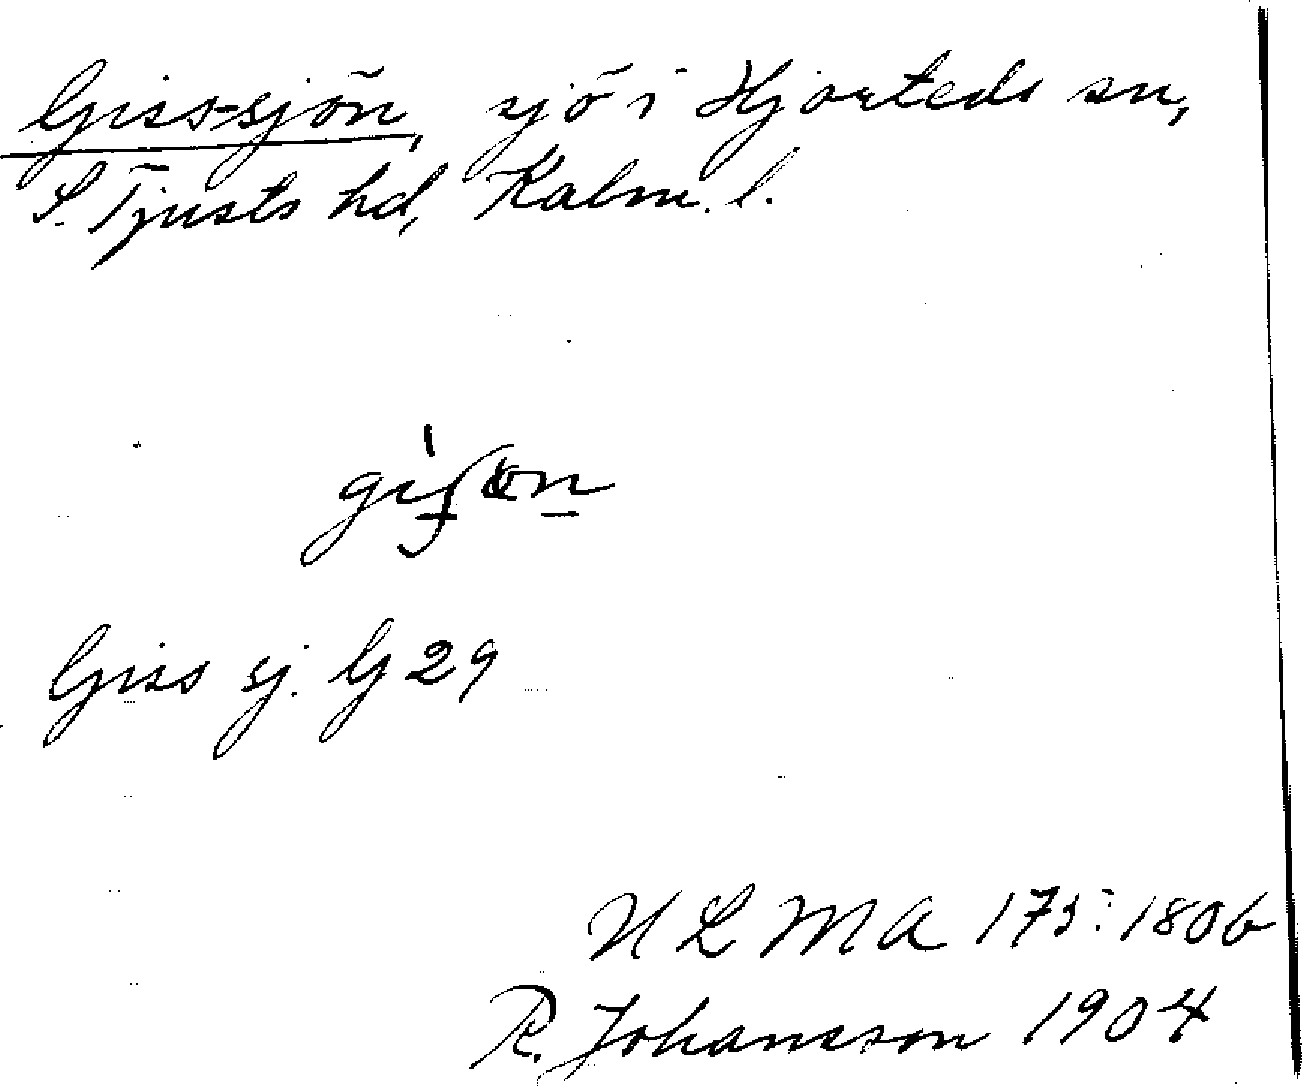 Giss-sjön, sjö i Hjorteds sn,
S. Tjusts hd, Kalm. l.
Giss sj. G 29
ULMA 175:180b
R. Johansson 1904